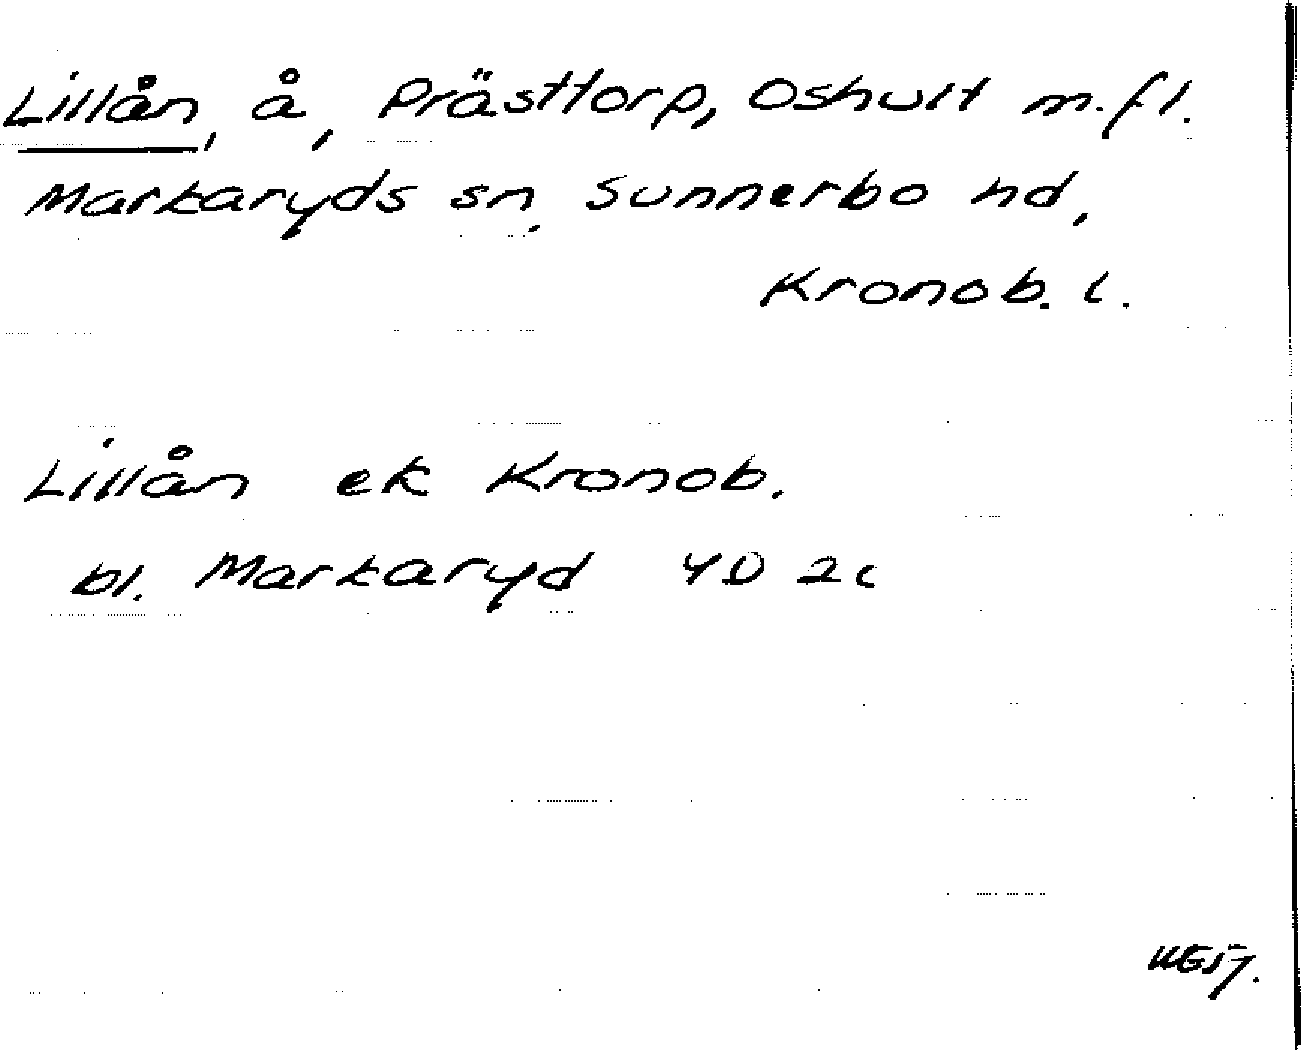 Lillån, å, Prästtorp, Oshult m.fl.
Markaryds sn, Sunnerbo hd,
Kronob. l.
Lillån ek Kronob.
bl. Markaryd 4D 2c